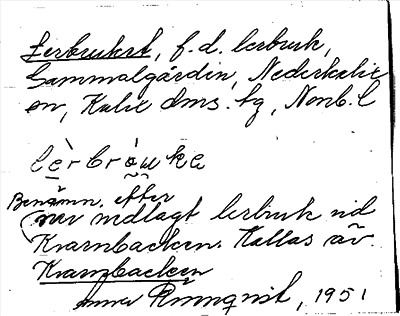 Lerbruket, f.d. lerbruk,
Gammalgården, Nederkalix
en, Kalix dms. fg, Nonb. l
lèrbròuka
Benämn. efter
nu nedlagt lerbruk vid
Kvarnbacken. Kallas äv.
Kvarnbacken
Rönnqvist, 1951